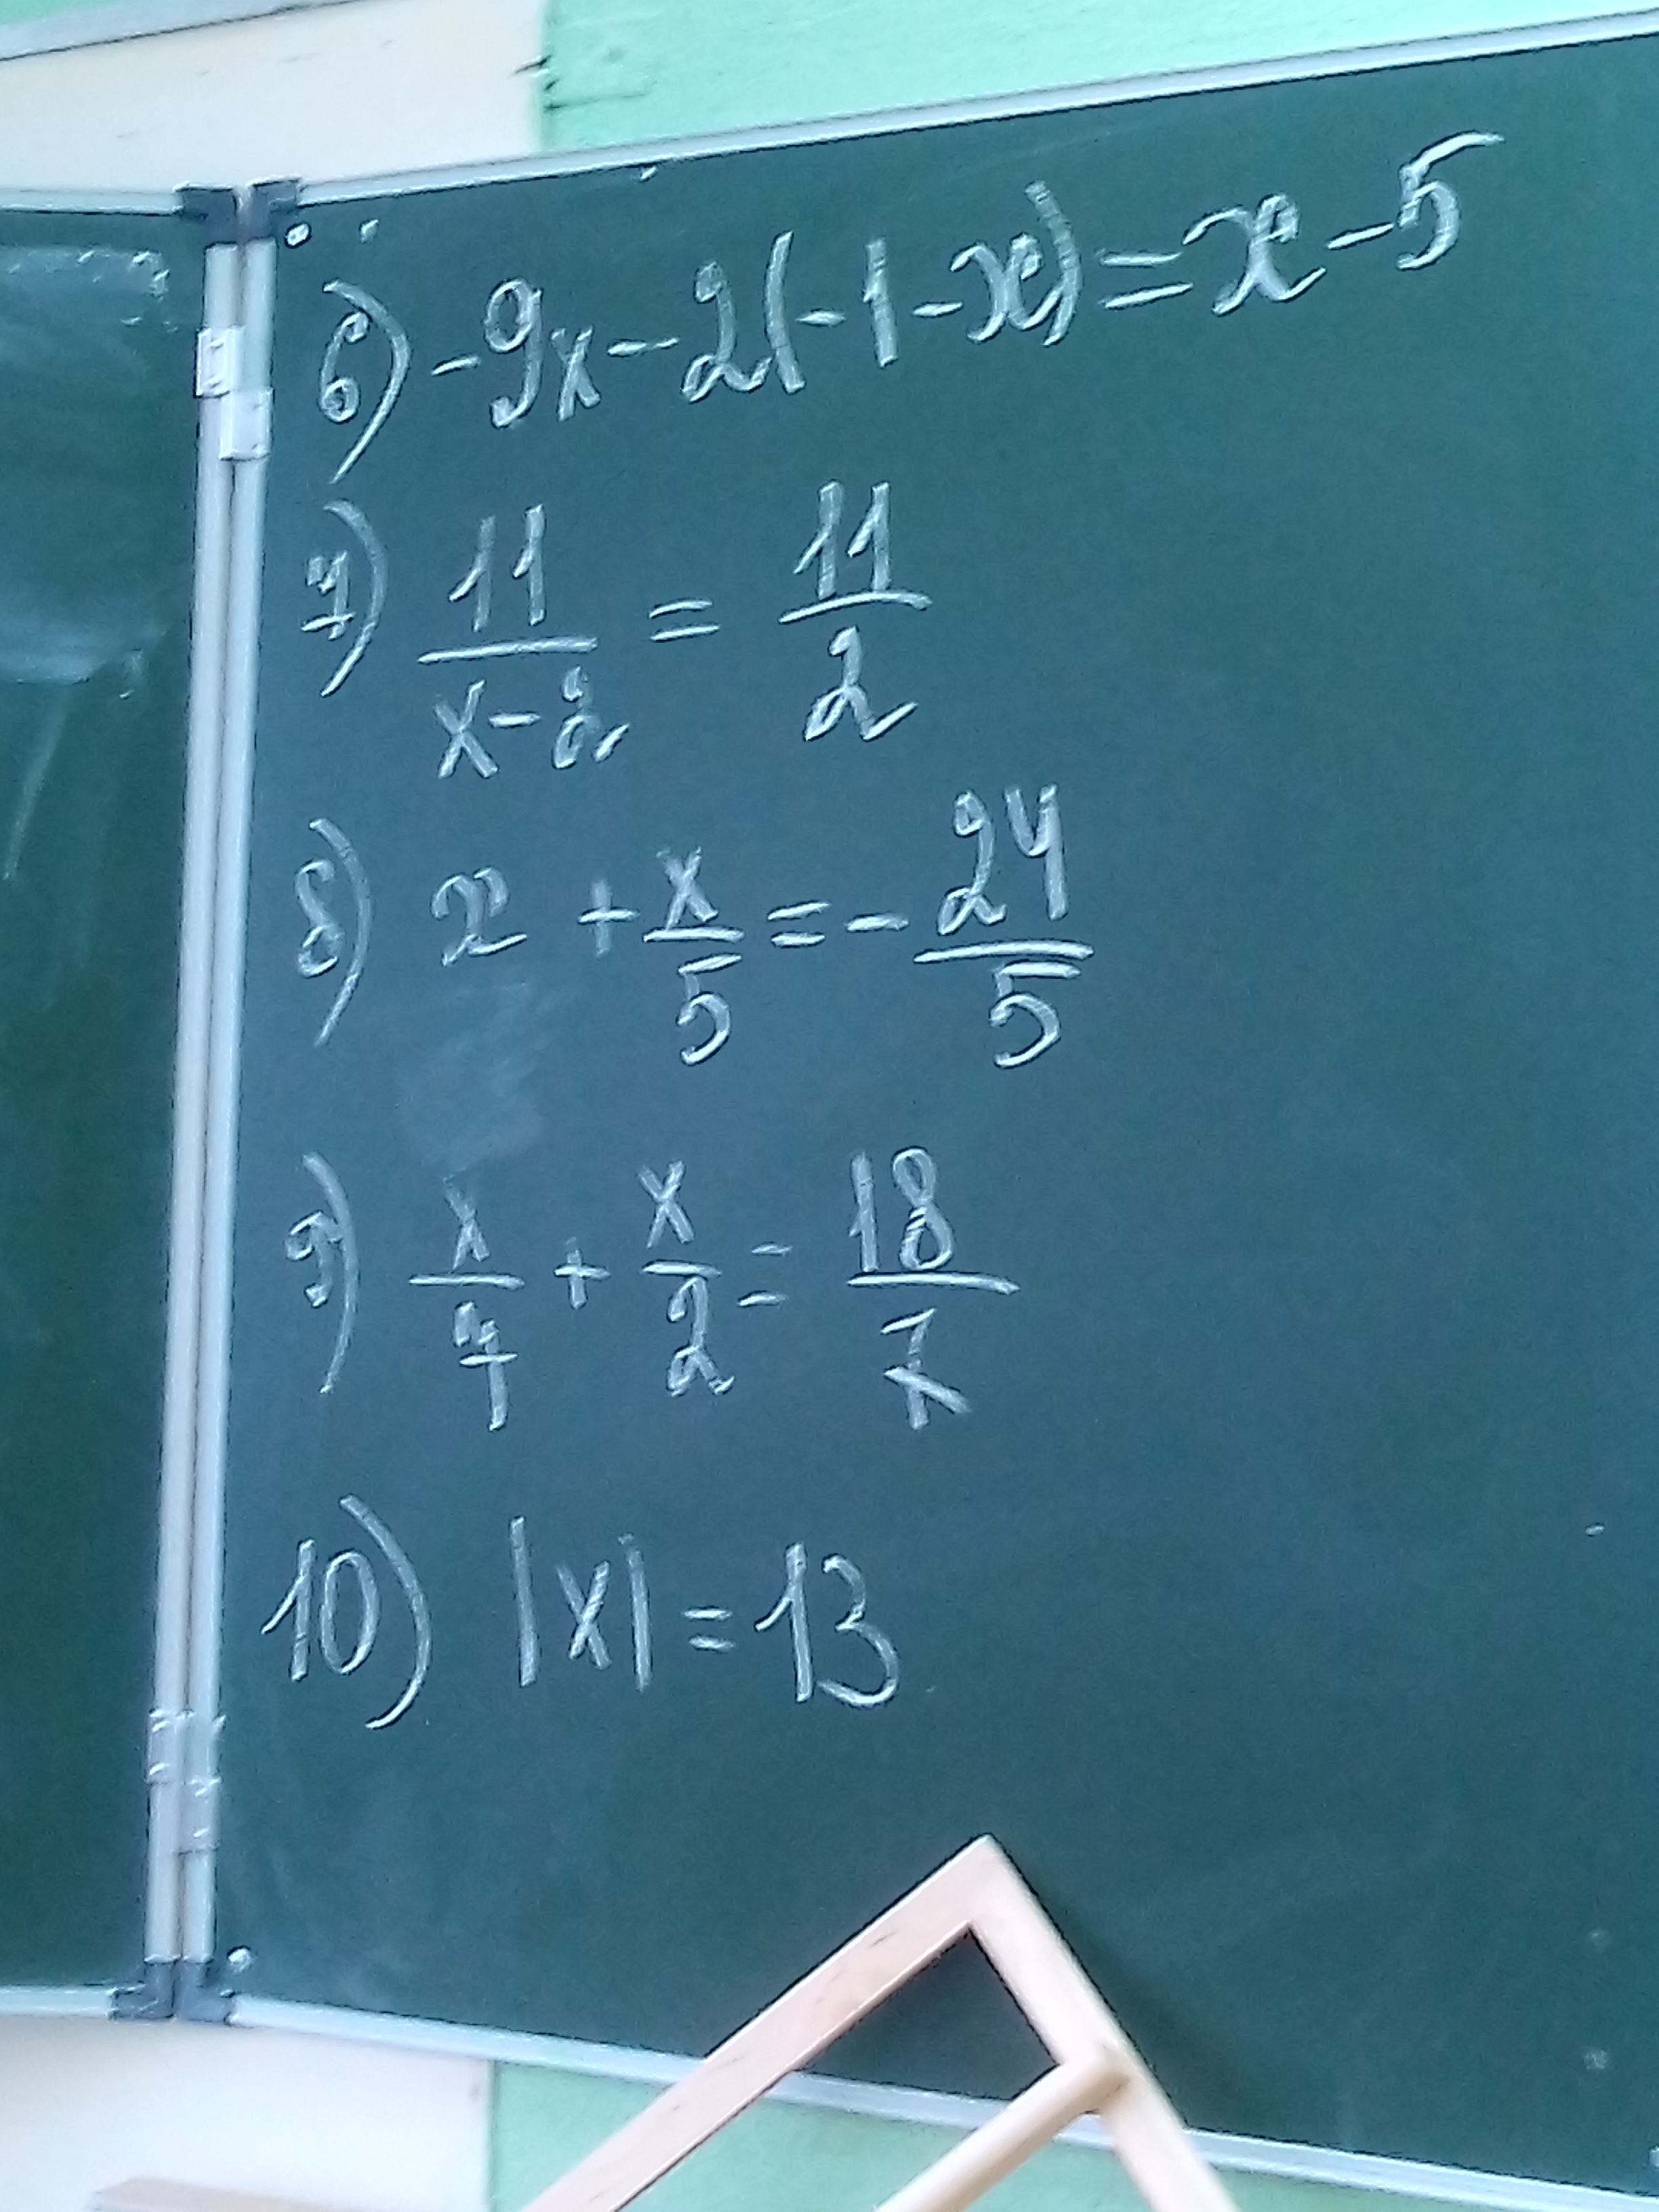 6) -9x - 2(-1-x) = x - 5
7) 11/(x-2) = 11/2
8) x + x/5 = -24/5
9) x/7 + x/2 = 18/7
10) |x| = 13